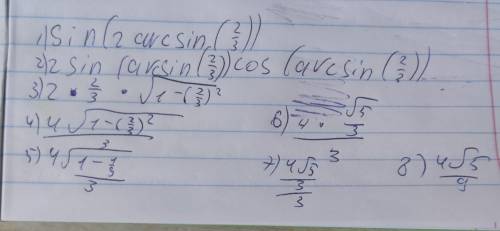 1) sin(2 arcsin(2/3))
2) 2 sin(arcsin(2/3)) cos(arcsin(2/3))
3) 2 · 2/3 · √(1-(2/3)²)
4) 4√(1-(2/3)²) / 3
5) 4√(1-4/9) / 3
6) 4 · √5/3 / 3
7) 4√5/3 / 3
8) 4√5/9